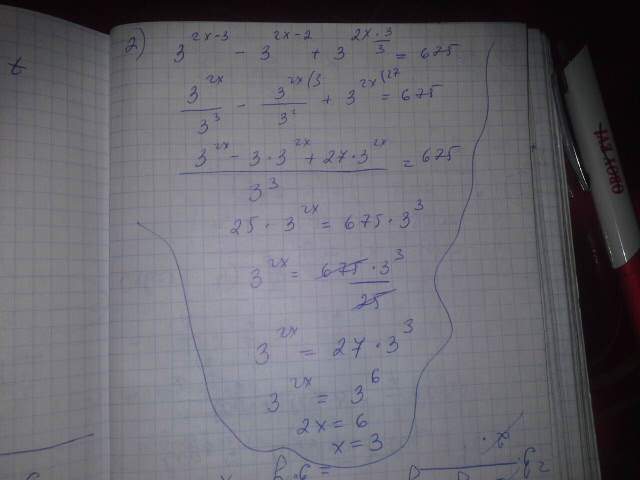 2) 3^{2x-3} - 3^{2x-2} + 3^{\frac{2x \cdot 3}{3}} = 675
\frac{3^{2x}}{3^3} - \frac{3^{2x (3}}{3^2} + 3^{2x (27} = 675
\frac{3^{2x} - 3 \cdot 3^{2x} + 27 \cdot 3^{2x}}{3^3} = 675
25 \cdot 3^{2x} = 675 \cdot 3^3
3^{2x} = \frac{675 \cdot 3^3}{25}
3^{2x} = 27 \cdot 3^3
3^{2x} = 3^6
2x = 6
x = 3